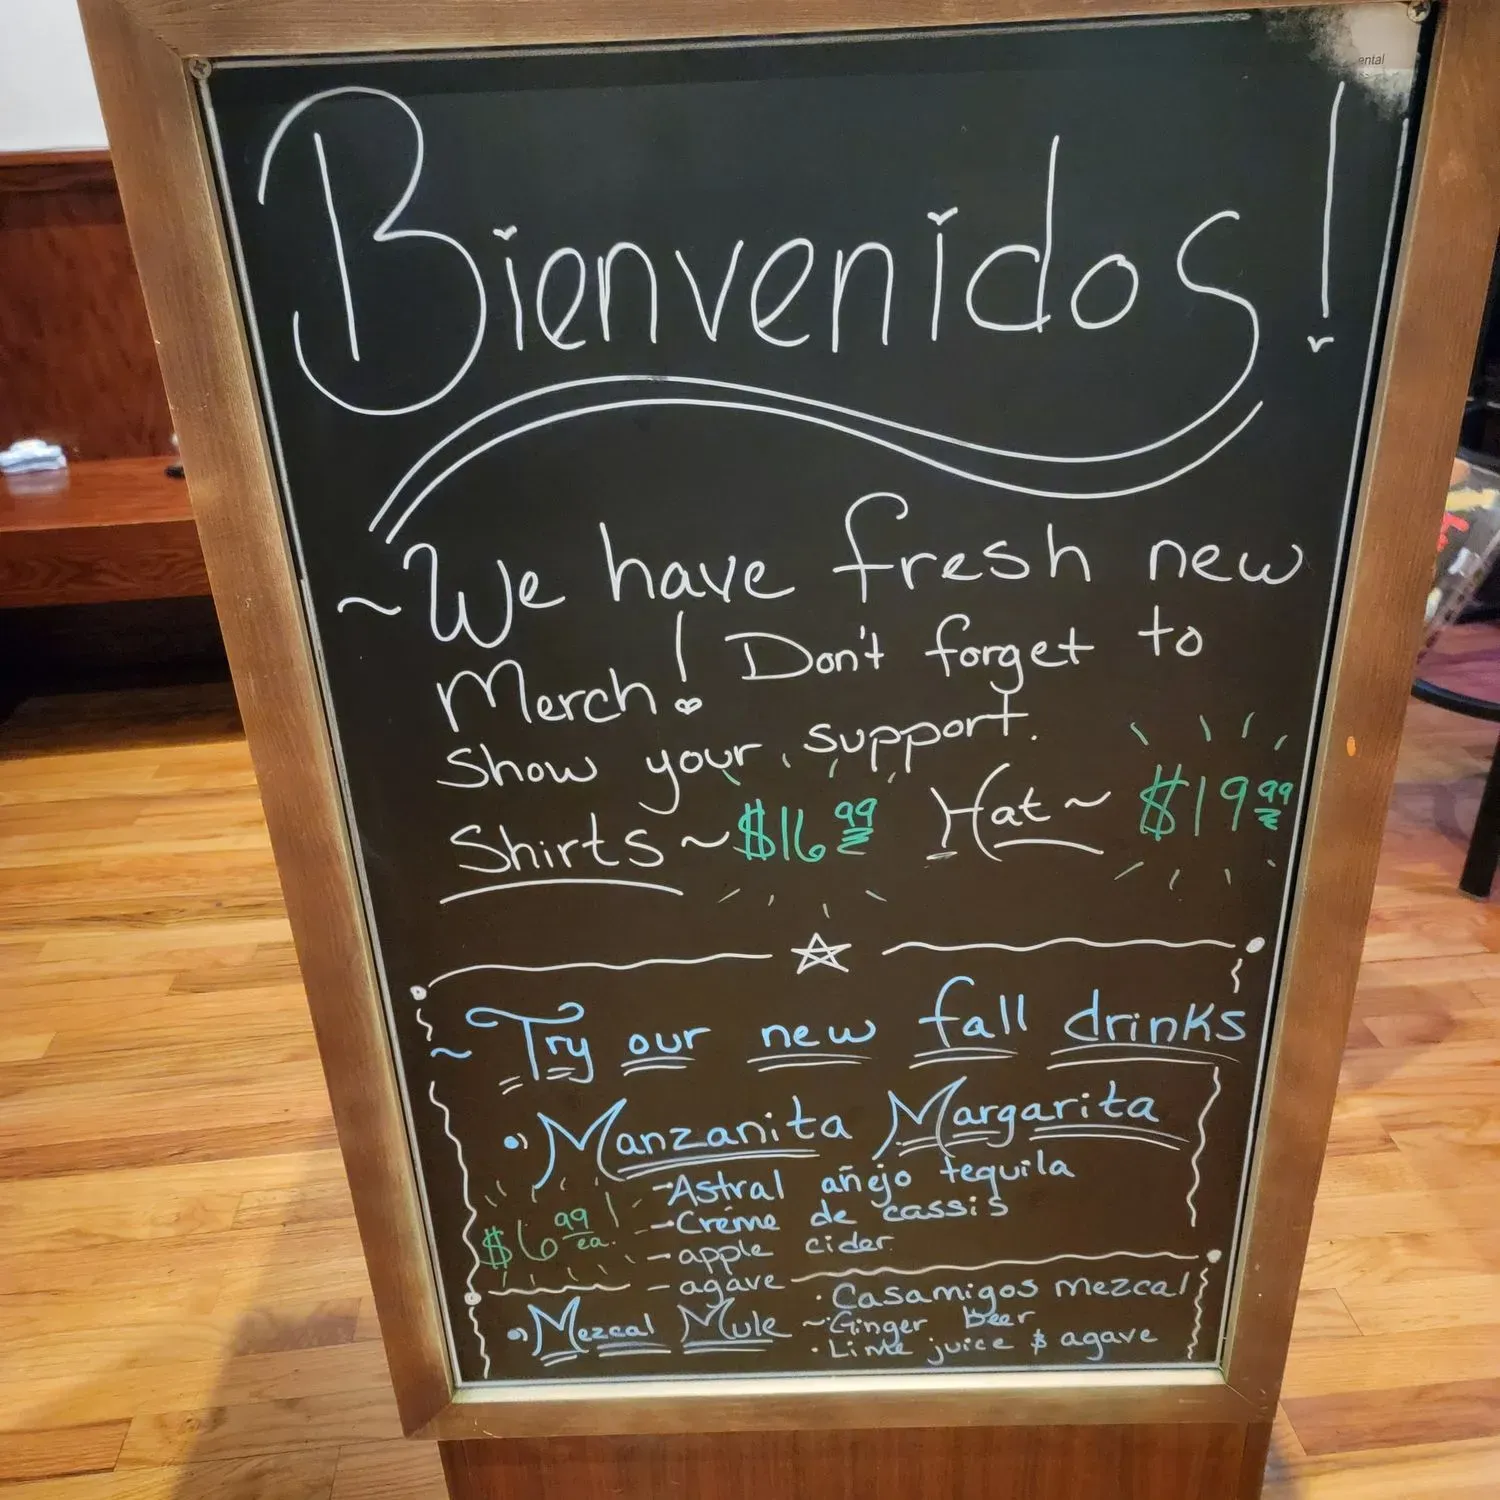 ental
Bienvenidos!
~We have fresh new
Merch! Don't forget to
show your support.
Shirts ~ $16.99 Hat ~ $19.99
~ Try our new fall drinks
•) Manzanita Margarita
-Astral añejo tequila
-Créme de cassis
$6.99 ea. !
- apple cider
- agave
•) Mezcal Mule ~
· Casamigos mezcal
· Ginger beer
· Lime juice & agave